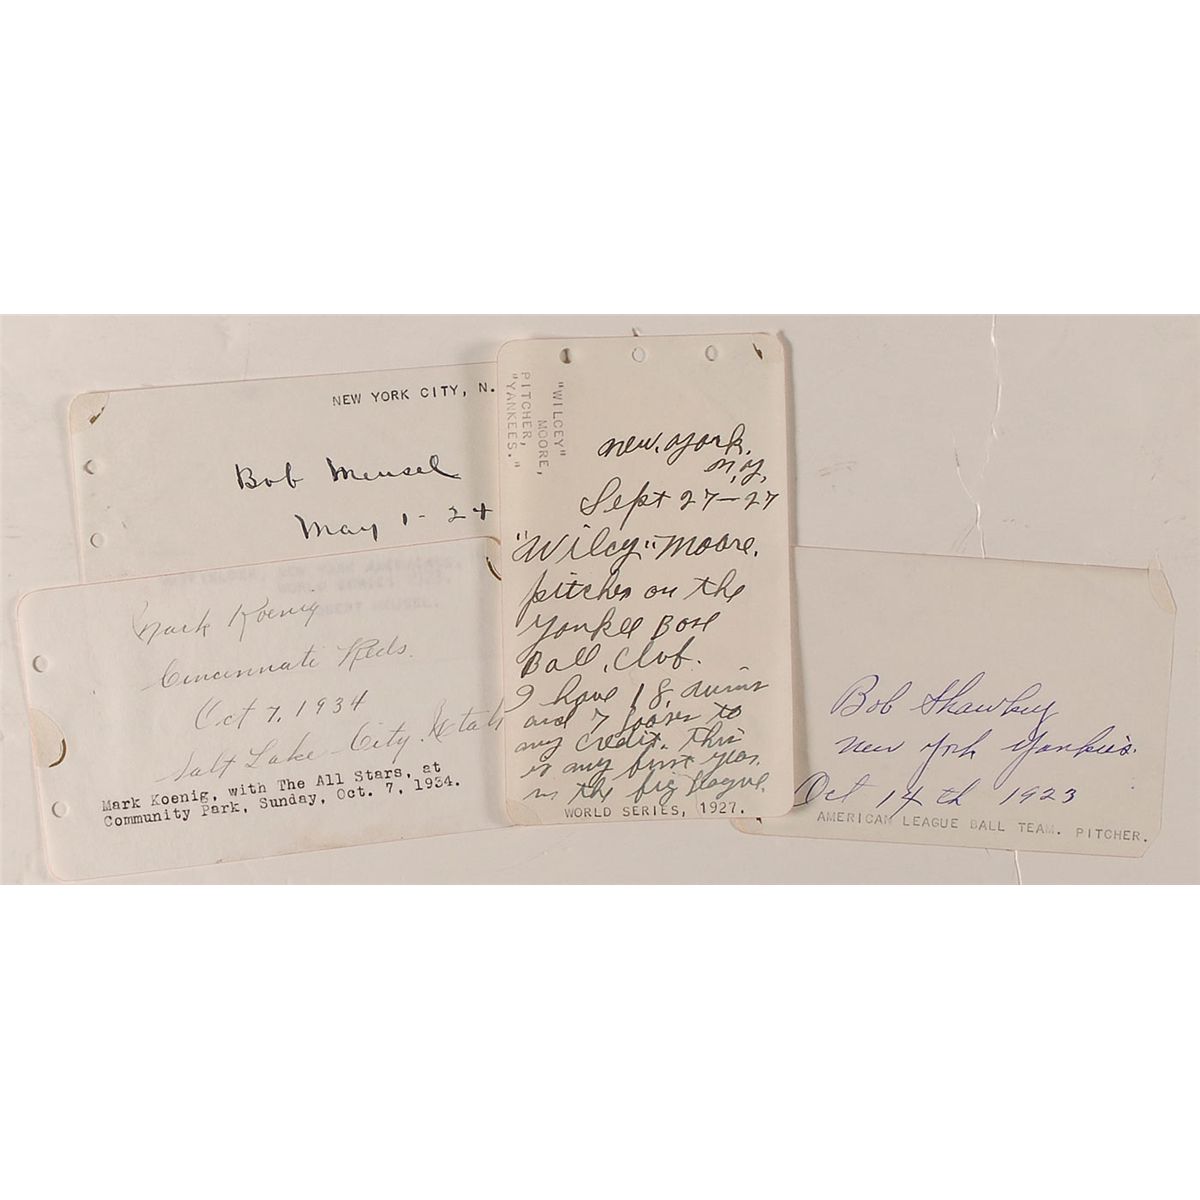 NEW YORK CITY, N.
Bob Meusel
May 1 - 24
Mark Koenig
Cincinnati Reds.
Oct 7, 1934
Salt Lake City Utah
Mark Koenig, with The All Stars, at
Community Park, Sunday, Oct. 7, 1934.
"WILCEY"
MOORE,
PITCHER,
"YANKEES."
New. York.
N.Y.
Sept 27-27
"Wilcy" Moore.
pitcher on the
Yankee Base
Ball. Club.
I have 18, wins
and 7 losses to
my credit. This
is my first year.
in the big League.
WORLD SERIES, 1927.
Bob Shawkey
New York Yankies.
Oct 14th 1923
AMERICAN LEAGUE BALL TEAM. PITCHER.